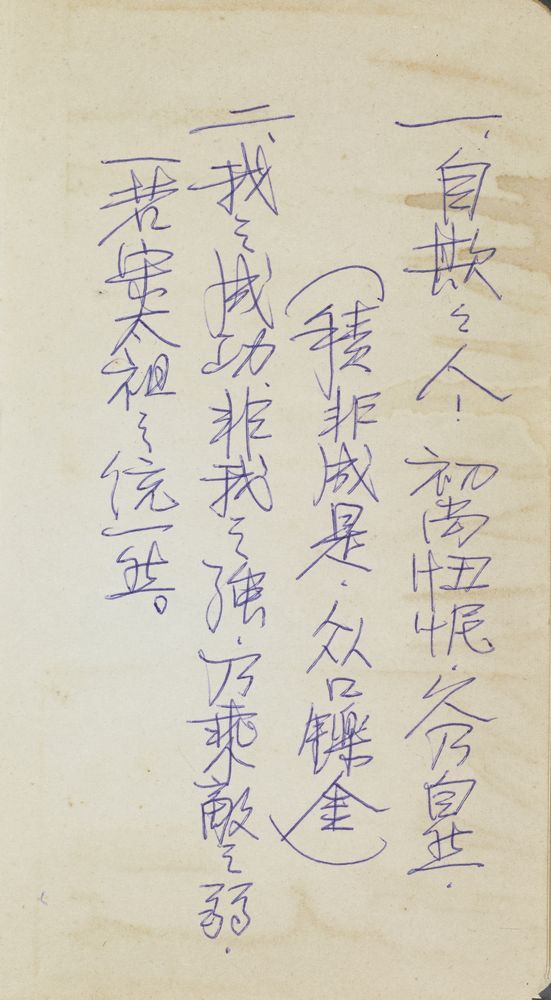 一、自欺之人、初尚忸怩、久乃自然、
(積非成是、众口鑠金)
二、我之成功、非我之強、乃乘敵之弱、
一若宋太祖之統一然。